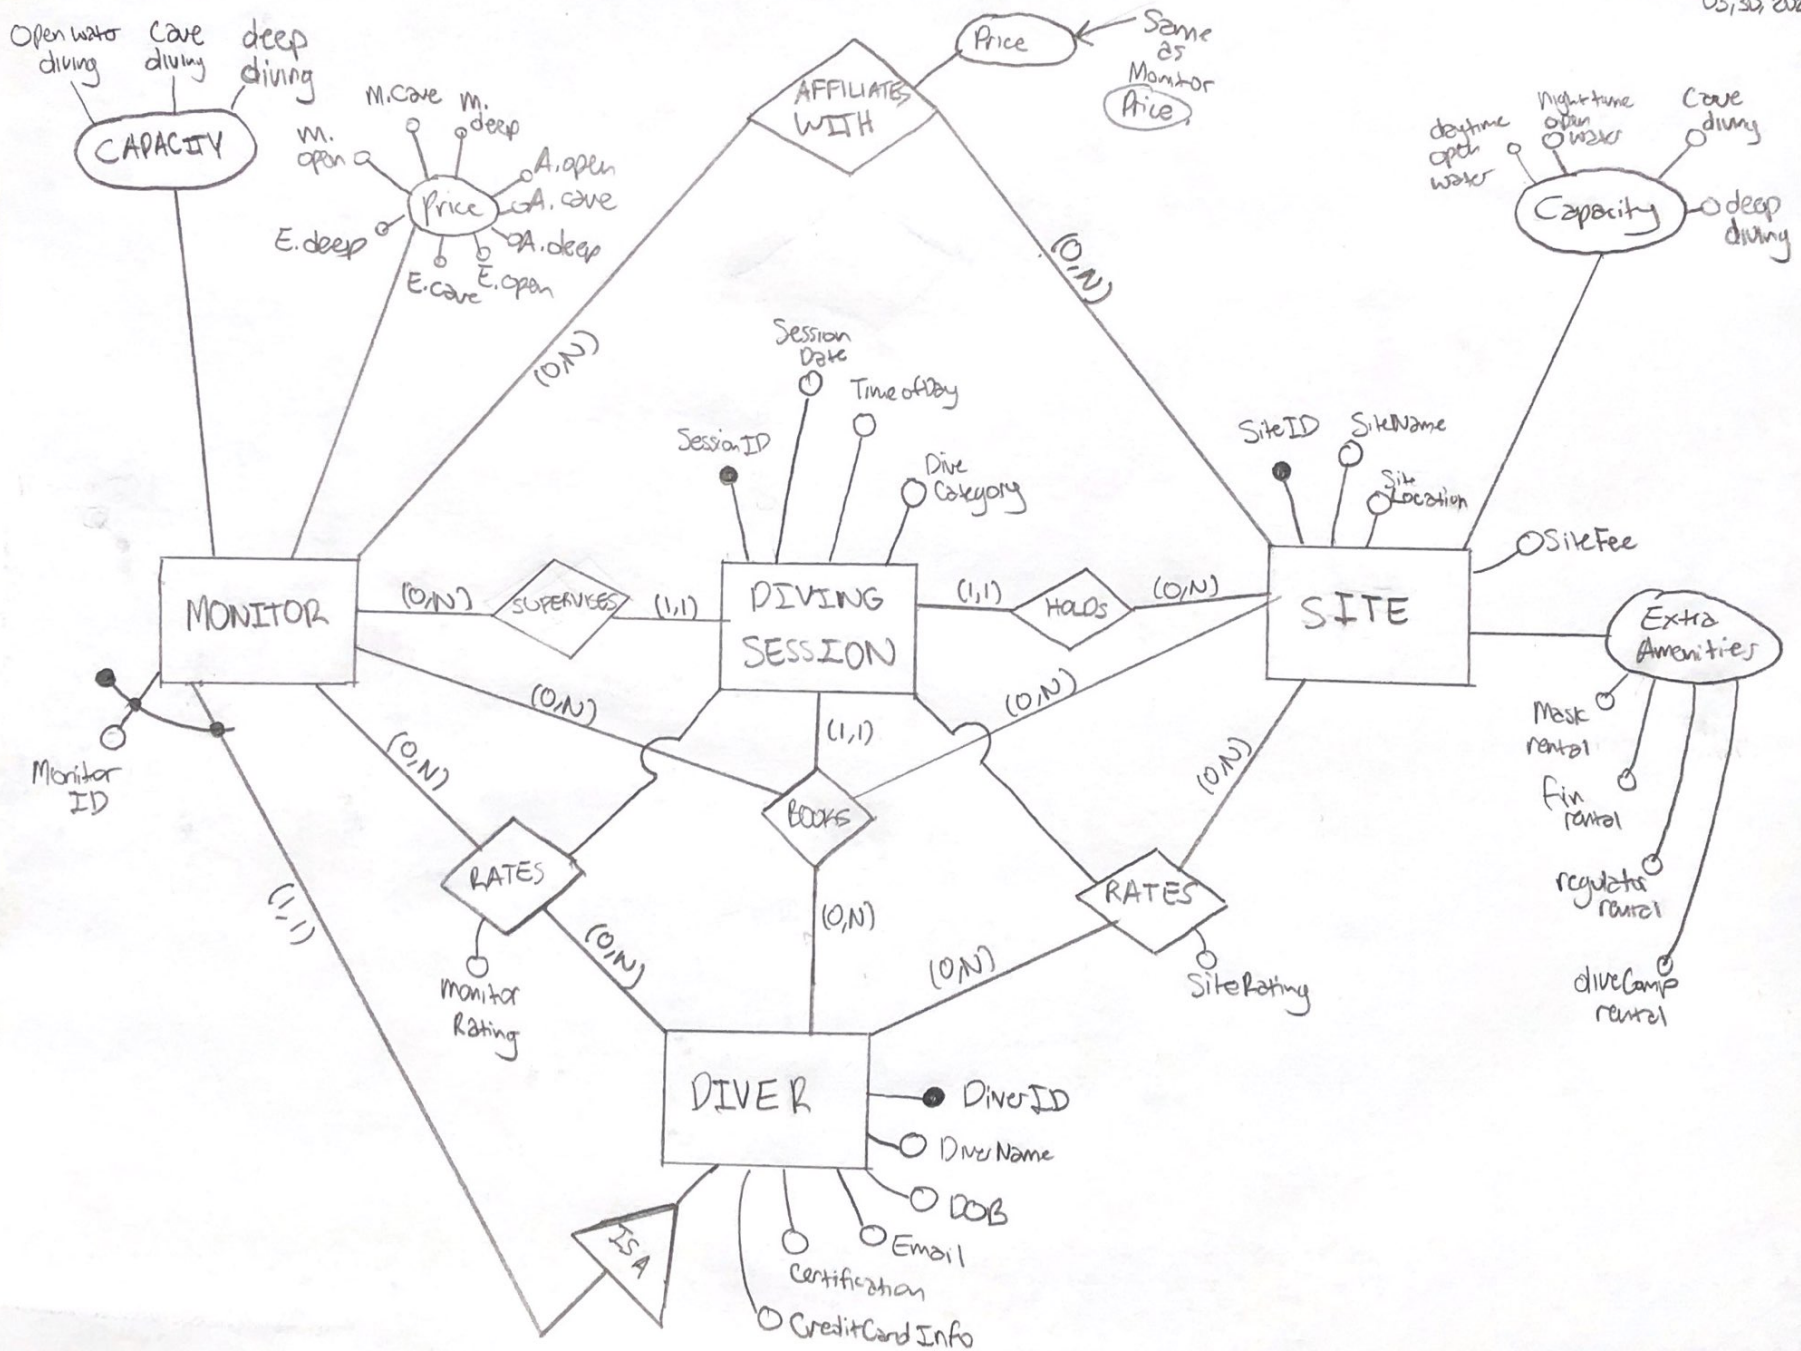 Open water
diving
Cave
diving
deep
diving
CAPACITY
M. Cave
M.
deep
M.
open
A.open
A. cave
A.deep
E.open
E.cave
E.deep
Price
AFFILIATES
WITH
Price
Same
as
Monitor
Price
daytime
open
water
Nighttime
open
water
Cave
diving
deep
diving
Capacity
(0,N)
(0,N)
Session
Date
Time of Day
SessionID
Dive
Category
SiteID
SiteName
Site
Location
SiteFee
MONITOR
(0,N)
SUPERVISES
(1,1)
DIVING
SESSION
(1,1)
HOLDS
(0,N)
SITE
Extra
Amenities
Mask
rental
fin
rental
regulator
rental
diveComp
rental
Monitor
ID
(0,N)
(0,N)
(1,1)
(0,N)
(0,N)
BOOKS
RATES
RATES
(1,1)
(0,N)
(0,N)
(0,N)
Monitor
Rating
SiteRating
DIVER
DiverID
DiverName
DOB
Email
Certification
CreditCardInfo
ISA